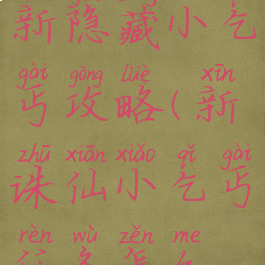 新隐藏小乞
gài gōng lüè xīn
丐攻略(新
zhū xiān xiǎo qǐ gài
诛仙小乞丐
rèn wù zěn me